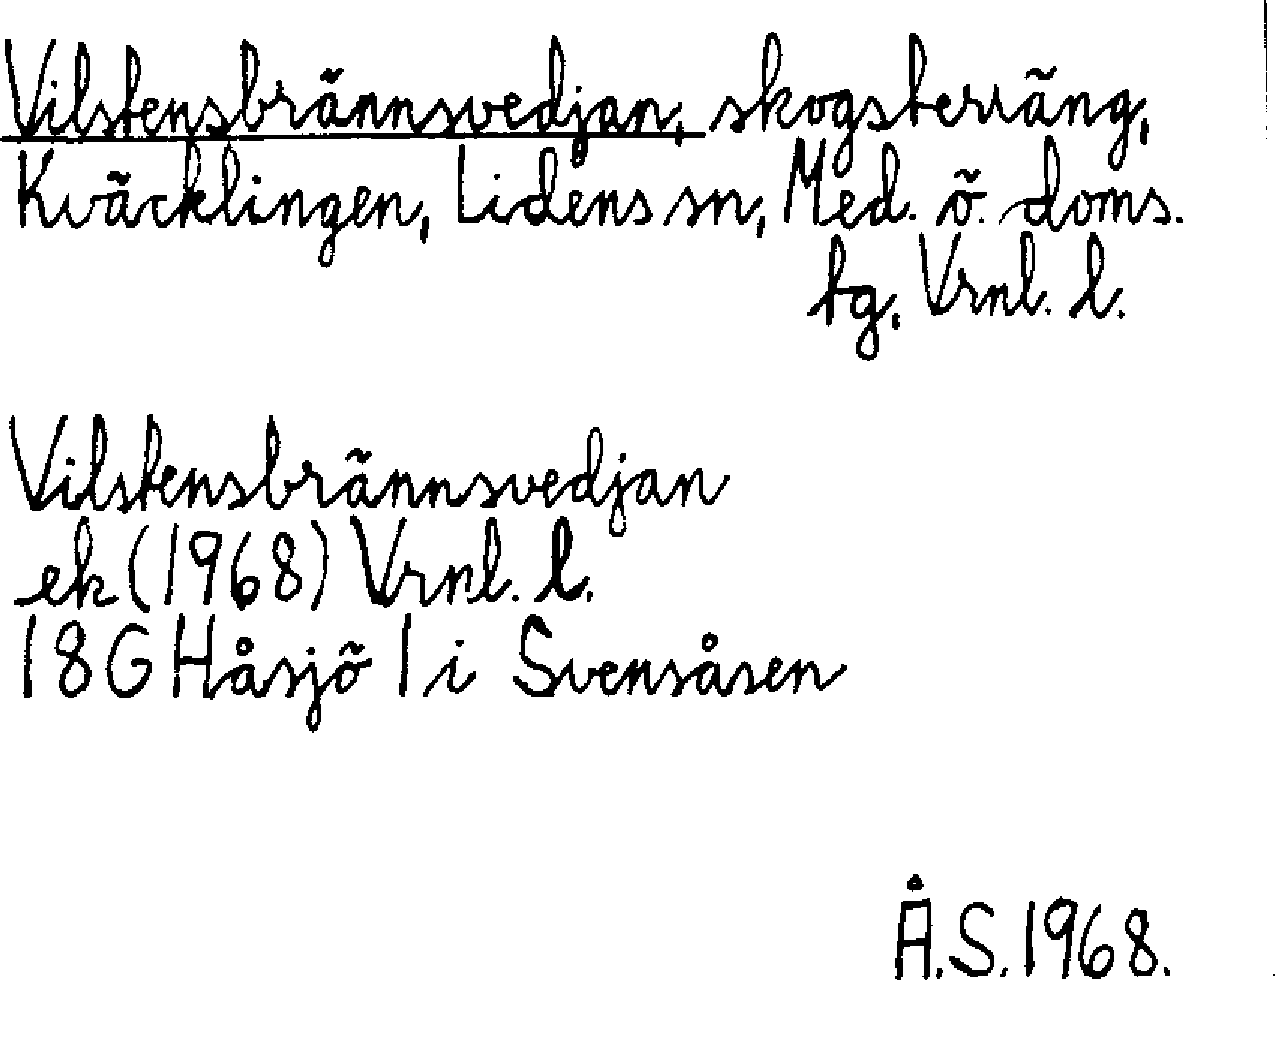 Vilstensbrännsvedjan, skogsterräng,
Kväcklingen, Lidens sn, Med. ö. doms.
tg, Vrnl. l.
Vilstensbrännsvedjan
ek (1968) Vrnl. l.
18G Håsjö 1 i Svensåsen
Å.S. 1968.